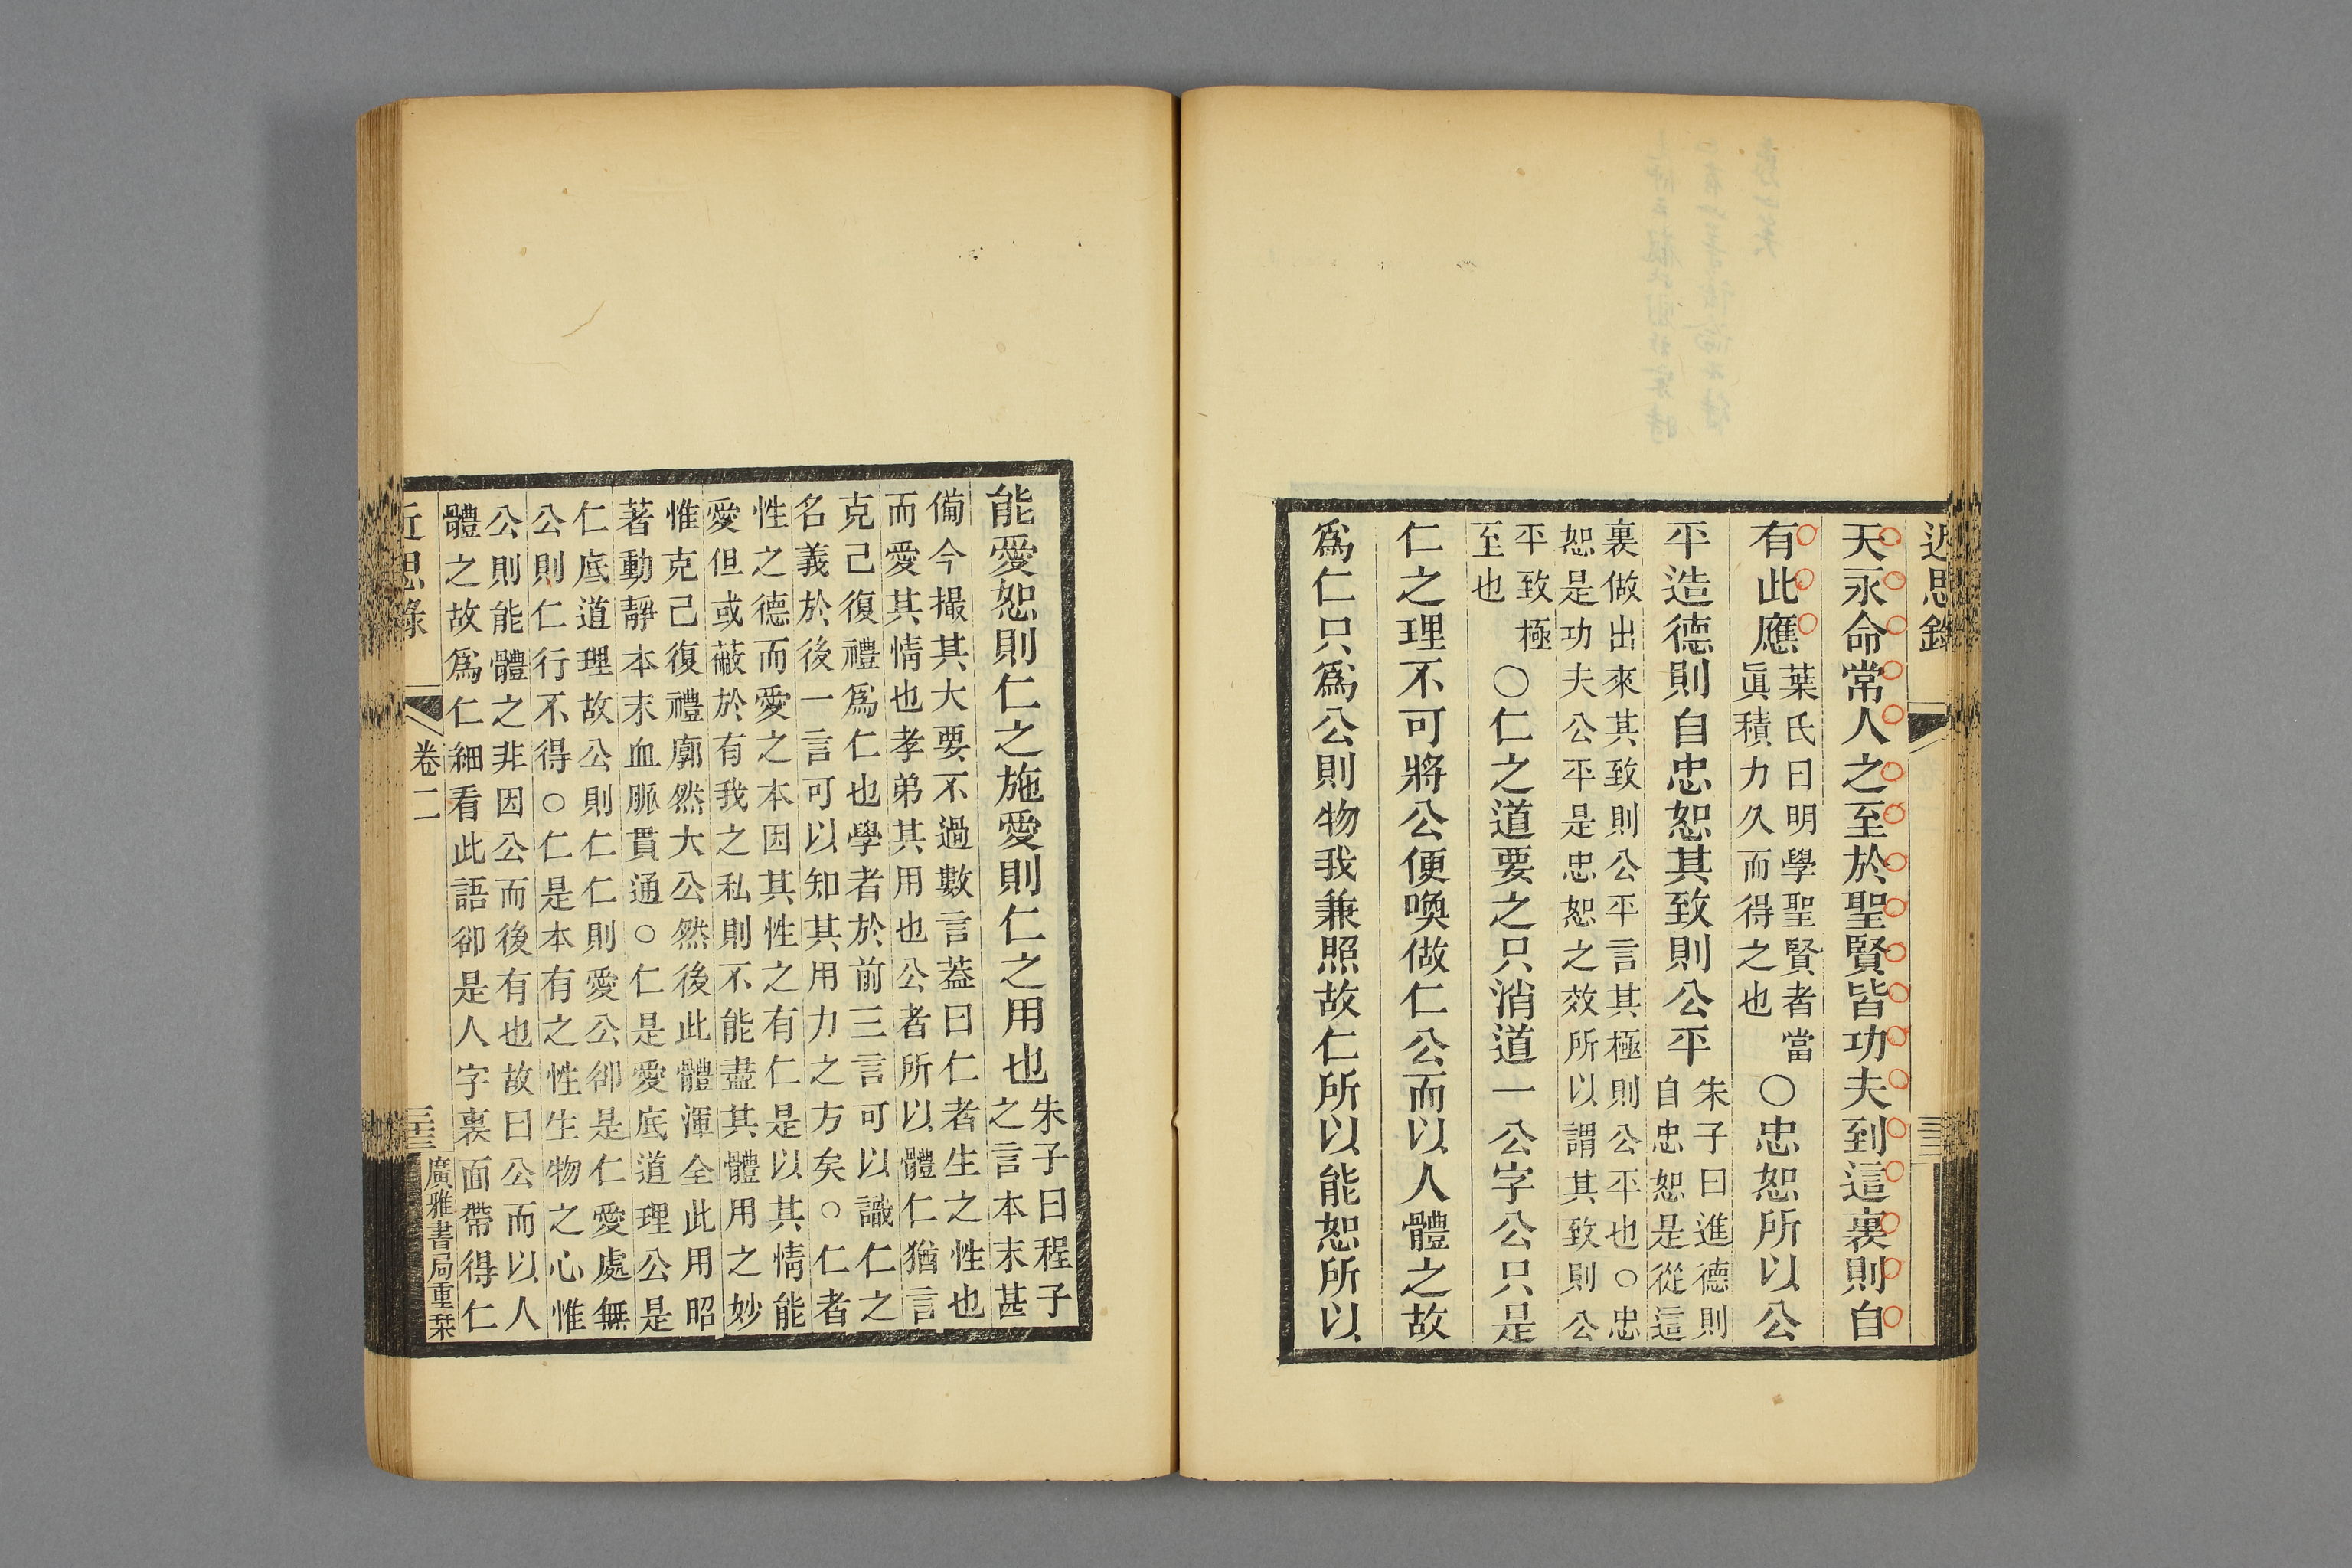 近思錄
天永命常人之至於聖賢皆功夫到這裏則自
有此應
葉氏曰明學聖賢者當
眞積力久而得之也
○忠恕所以公
平造德則自忠恕其致則公平
朱子曰進德則
自忠恕是從這
裏做出來其致則公平言其極則公平也○忠
恕是功夫公平是忠恕之效所以謂其致則公
平致極
至也
○仁之道要之只消道一公字公只是
仁之理不可將公便喚做仁公而以人體之故
爲仁只爲公則物我兼照故仁所以能恕所以
能愛恕則仁之施愛則仁之用也
朱子曰程子
之言本末甚
備今撮其大要不過數言葢曰仁者生之性也
而愛其情也孝弟其用也公者所以體仁猶言
克己復禮爲仁也學者於前三言可以識仁之
名義於後一言可以知其用力之方矣○仁者
性之德而愛之本因其性之有仁是以其情能
愛但或蔽於有我之私則不能盡其體用之妙
惟克己復禮廓然大公然後此體渾全此用昭
著動靜本末血脈貫通○仁是愛底道理公是
仁底道理故公則仁仁則愛公卻是仁愛處無
公則仁行不得○仁是本有之性生物之心惟
公則能體之非因公而後有也故曰公而以人
體之故爲仁細看此語卻是人字裏面帶得仁
近思錄
卷二
三十三
廣雅書局重栞